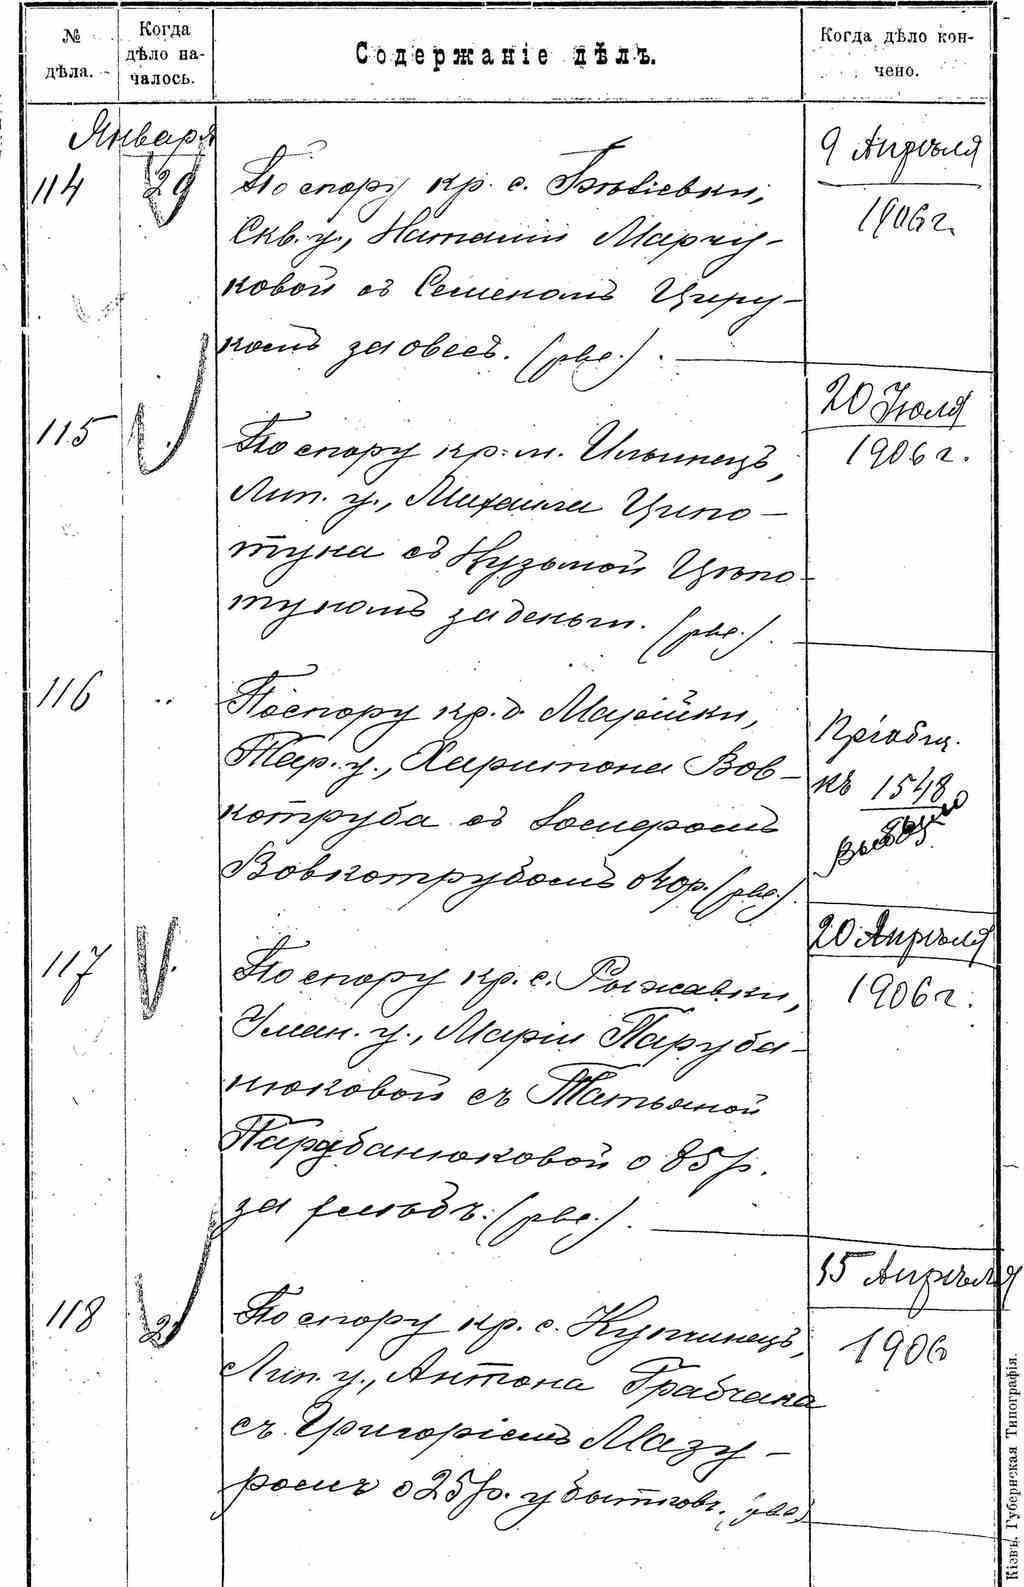 № дѣла.
Когда дѣло на-
чалось.
Содержаніе дѣлъ.
Когда дѣло кон-
чено.
Января
114
29
По спору кр. с.
Скв. у., Наталіи Марчу-
ковой съ Семеномъ Циру-
комъ за овесъ. (рве.).
9 Апрѣля
1906 г.
115
По спору кр. м. Ильинецъ,
Лип. у., Михаила Цыпо-
туна съ Кузьмой Цыпо-
туномъ за деньги. (рве.).
20 Іюля
1906 г.
116
"
По спору кр. д. Марійки,
Тар. у., Харитона Вов-
котруба съ Іосифомъ
Вовкотрубомъ о кор. (рве.).
Пріобщ.
къ 1548
117
По спору кр. с. Рыжавки,
Уман. у., Маріи Паруба-
нюковой съ Татьяной
Парубанюковой о 85 р.
за хлѣбъ. (рве.).
20 Апрѣля
1906 г.
118
По спору кр. с. Купчинецъ,
Лип. у., Антона Грабчака
съ Григоріемъ Мазу-
ромъ о 25 р. убытковъ. (рве.)
15 Апрѣля
1906
Кіевъ. Губернская Типографія.